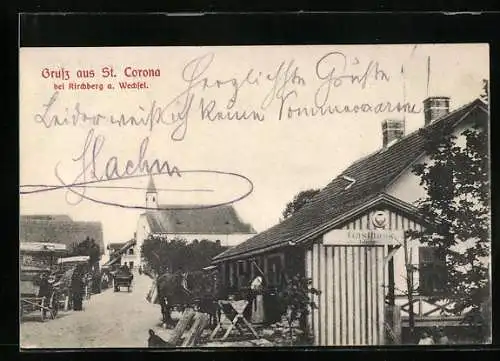 Gruß aus St. Corona
bei Kirchberg a. Wechsel.
Herzlichste Grüße
Leider weiß ich keine Sommerware
Gasthaus